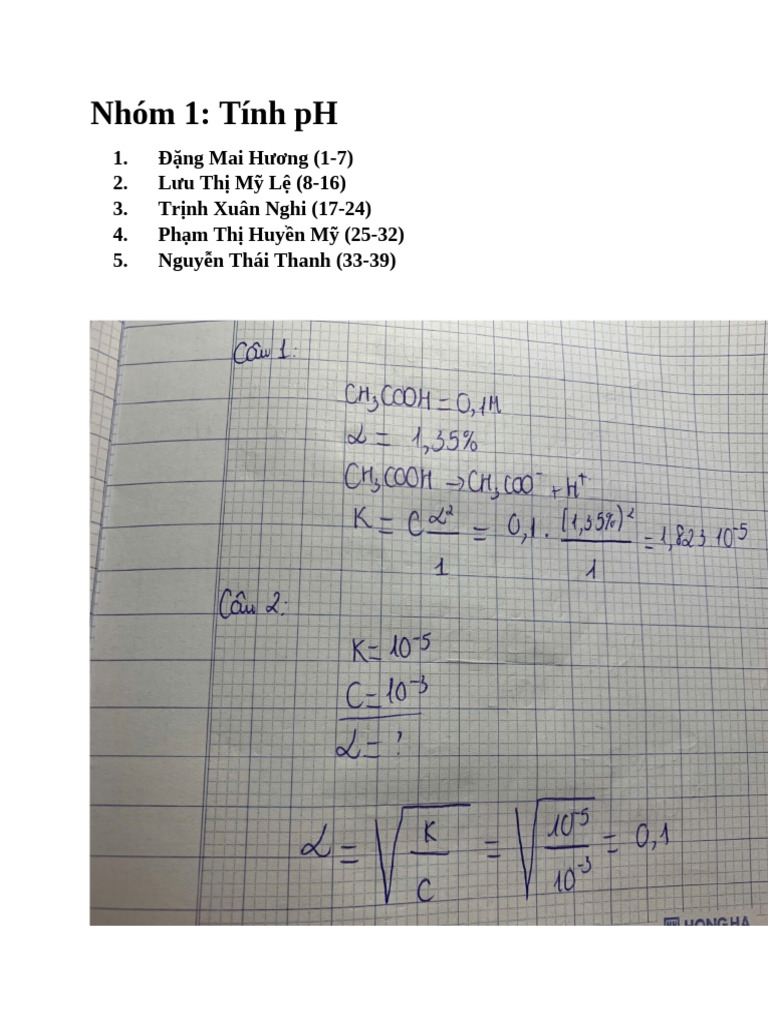 Nhóm 1: Tính pH
1. Đặng Mai Hương (1-7)
2. Lưu Thị Mỹ Lệ (8-16)
3. Trịnh Xuân Nghi (17-24)
4. Phạm Thị Huyền Mỹ (25-32)
5. Nguyễn Thái Thanh (33-39)
Câu 1:
CH₃COOH = 0,1M
α = 1,35%
CH₃COOH → CH₃COO⁻ + H⁺
K = C α²/1 = 0,1 . (1,35%)²/1 = 1,823 10⁻⁵
Câu 2:
K = 10⁻⁵
C = 10⁻³
α = ?
α = √(K/C) = √(10⁻⁵/10⁻³) = 0,1
HONG HA